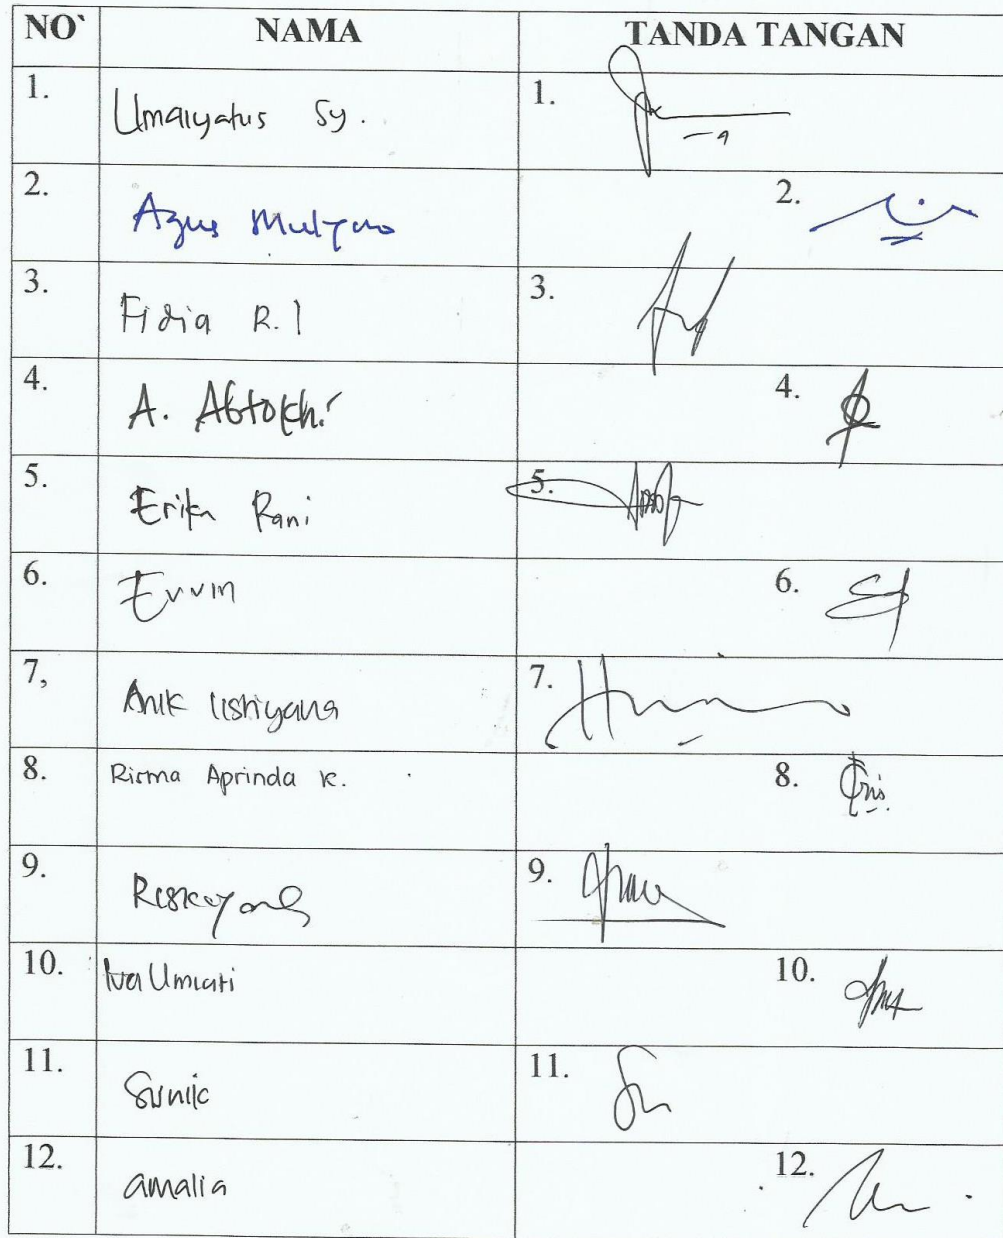 NO` NAMA TANDA TANGAN
1. Umaiyatus Sy. 1.
2. Agus Mulyono 2.
3. Fidia R.I 3.
4. A. 4.
5. Erika Rani 5.
6. Ervin 6.
7, Anik listiyana 7.
8. Risma Aprinda K. 8.
9. 9.
10. Iva Umiati 10.
11. 11.
12. amalia 12.